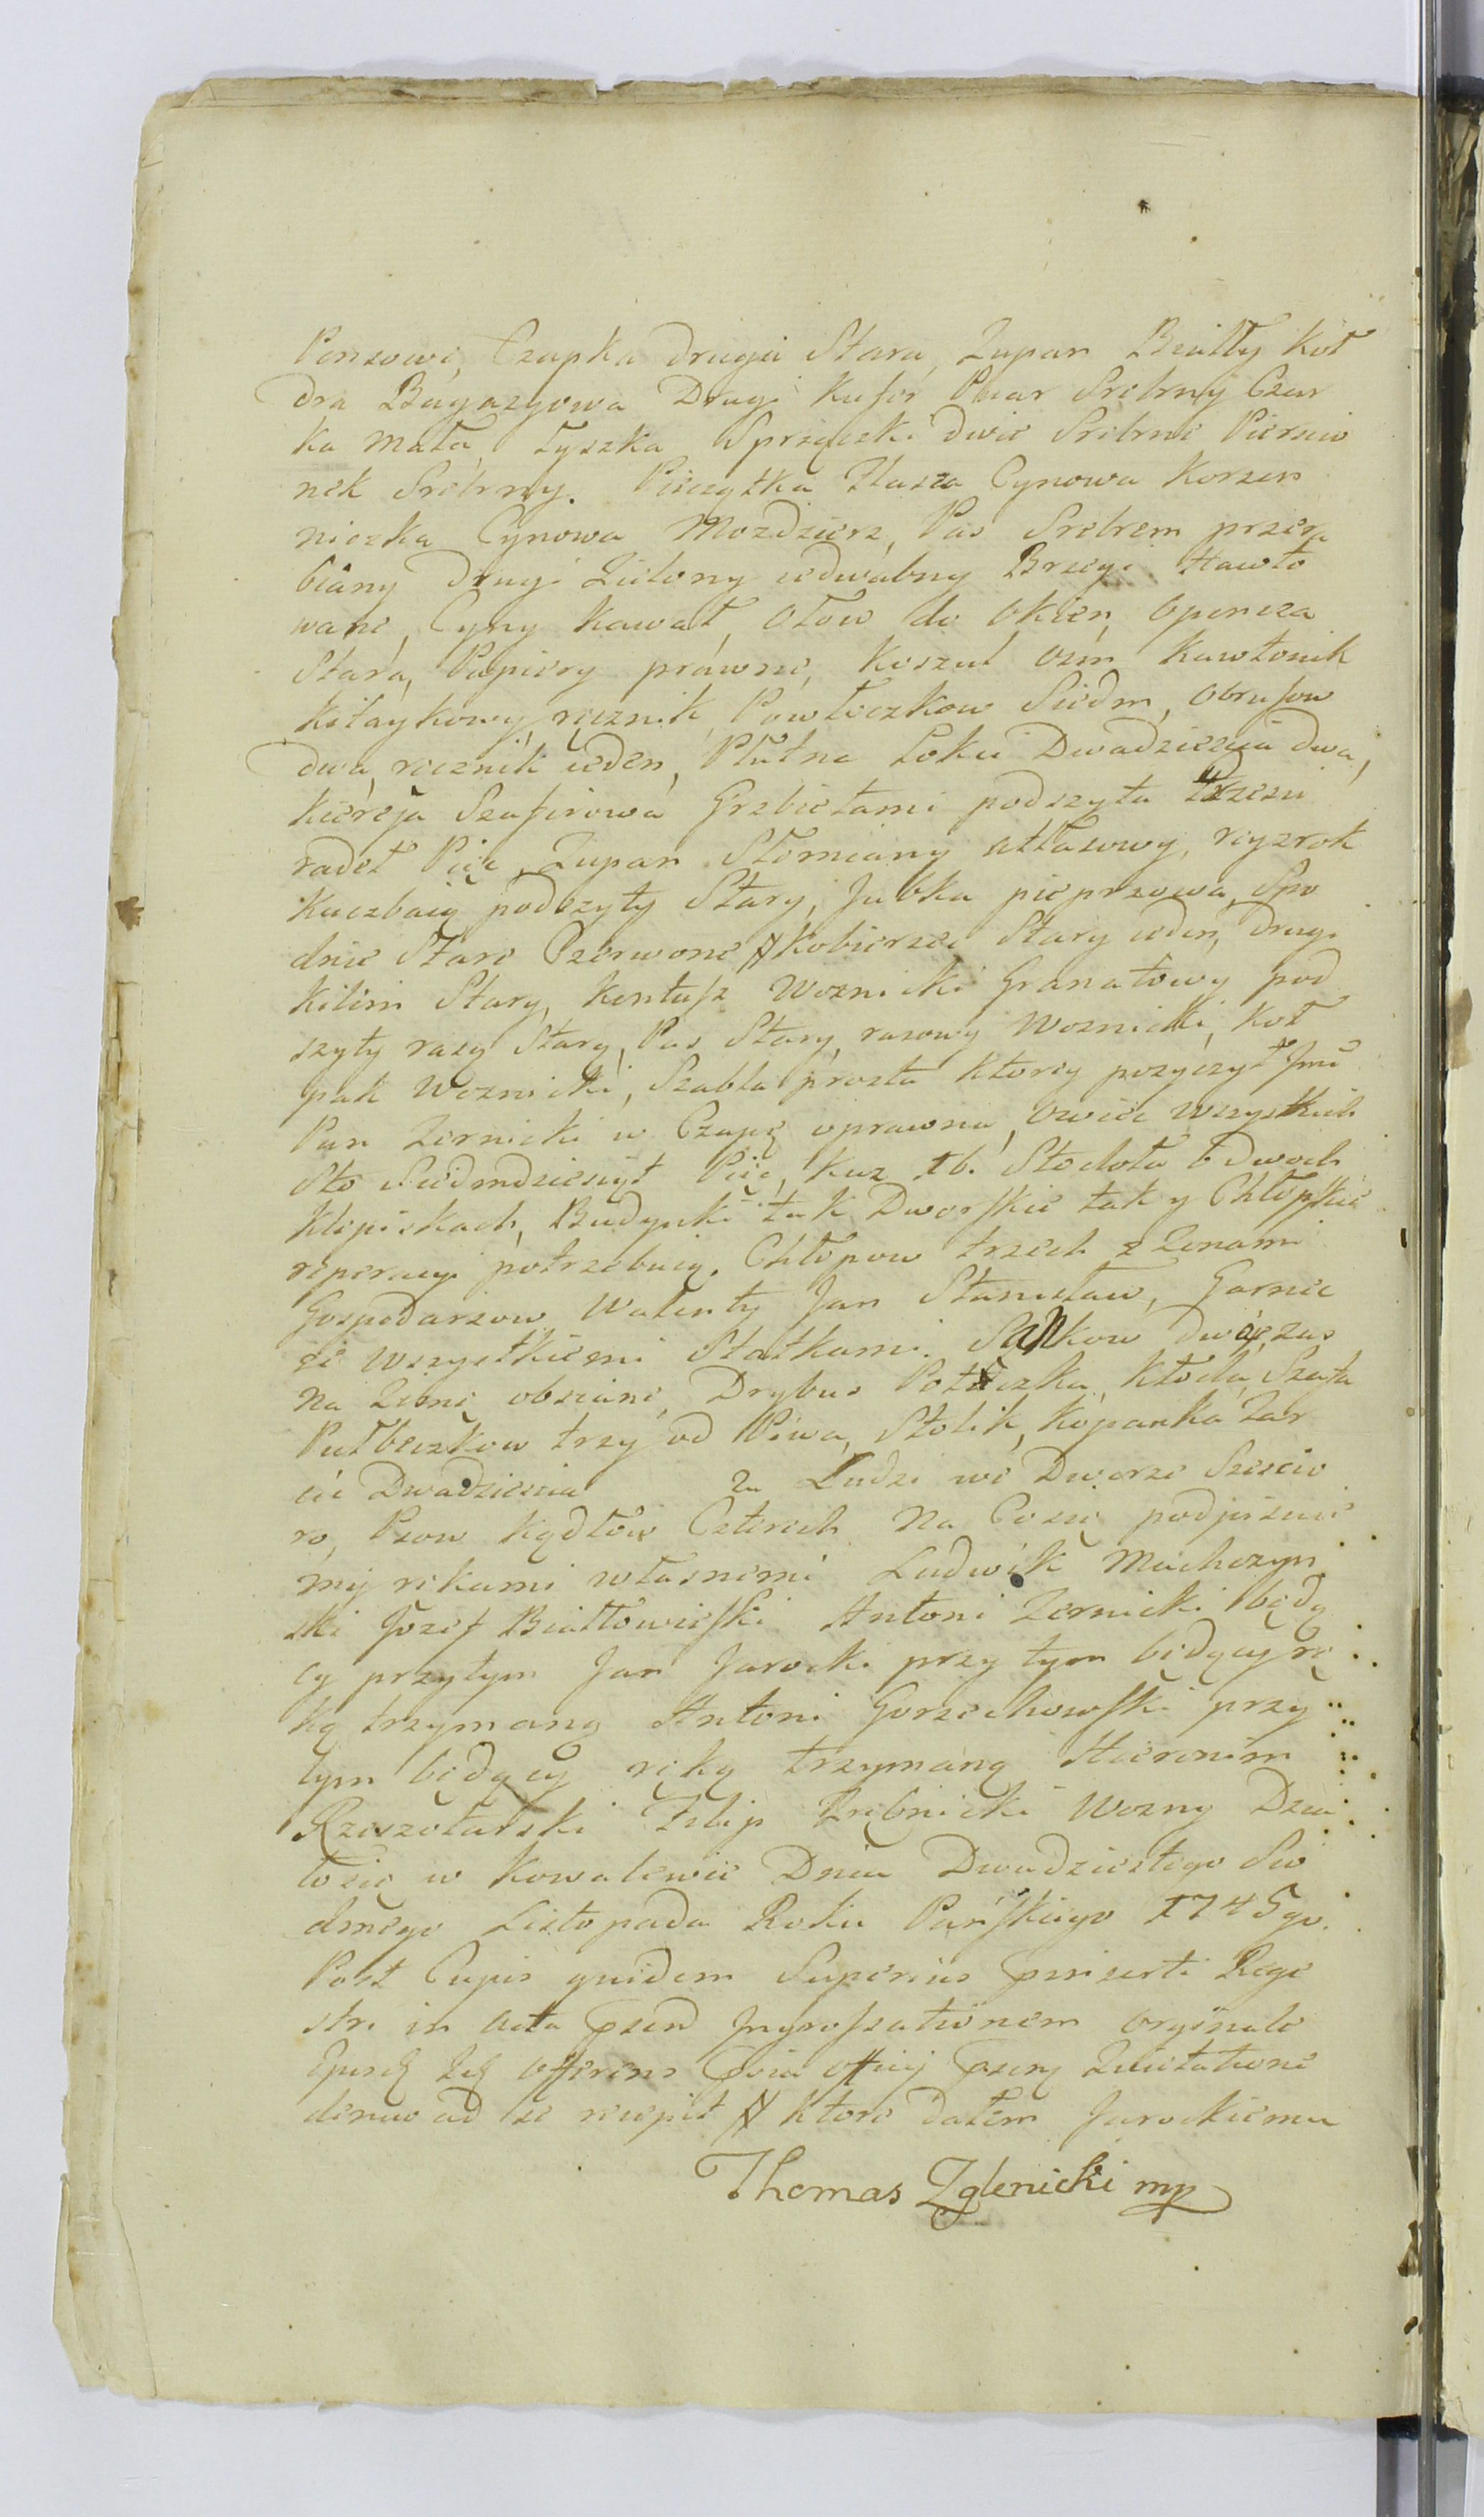 Ponsowi, Czapka druga Stara, Zupan Biały Koł
dra Bagazyowa Drugi Kufer Puar Srebrny Czar
ka mała, Łyszka Sprzączki dwie Srebrne Piersio
nek Srebrny. Pieczątka Flasza Cynowa Korzen
niczka Cynowa Mozdzierz, Pas Srebrem przera
biany Drugi Zielony iedwabny Brzegi Hawto
wane, Cyny kawał, Ołow do Okien, Opończa
Stara, Papiery prawne, Koszul ośm Kawtonik
Kitaykowy ręcznik, Powłoczkow Siedm, Obrusow
dwa, ręcznik ieden, Płutna Łokci Dwadziescia dwa,
Kiereja Szafirowa Grzbietami podszyta Krzesi
radeł Pięc, Zupan Słomiany atłasowy, reyzrok
Kuczbaią podszyty Stary, Jubka pieprzowa, Spo
dnie Stare Czerwone # Kobierzec Stary ieden, drugi
Kilim Stary, Kontusz Woznicki Granatowy pod
szyty razy Stary, Pas Stary, rasowy Woznicki, Koł
pak Woznicki, Szabla prosta ktorey pozyczył Jmć
Pan Zernicki w Czapę oprawna, Owiec wszystkich
Sto Siedmdziesiąt Pięć, Kuz 16. Stodoła o dwoch
Klepiskach, Budynki tak Dworskie tak y Chłopskie
reperacyi potrzebuią. Chłopow trzech z Zonami
Gospodarzow Walenty Jan Stanisław, Garniec
ze wszystkiemi Statkami. Sankow dwoie, zas
na Zimę obsiane, Drybus Potkczka, Kłoda, Szafa
Pułbeczkow trzy od Piwa, Stolik, Kopanka Zar
cie Dwadziescia 2a Ludzi we Dworze Szescio
ro, Psow Kądłow Czterech Na Co się podpisuie
my rękami własnemi Ludwik Machczyn
ski Jozef Białłowieski Antoni Zernicki będą
cy przytym Jan Jarocki przy tym będący rę
ką trzymaną Antoni Gorzechowski przy
tym będący ręką trzymaną Hieronim
Rzeszotarski Filip Trębnicki Wozny Dzia
ło się w Kowalewie Dnia Dwudziestego Sio
dmego Listopada Roku Pańskiego 1745go.
Post Cujus quidem Superius inserti Rege
stri in Acta Ingrossationem orginale
Offerens Officij Quietatione
de recepit # Ktore dałem Jarockiemu
Thomas Zglenicki mp